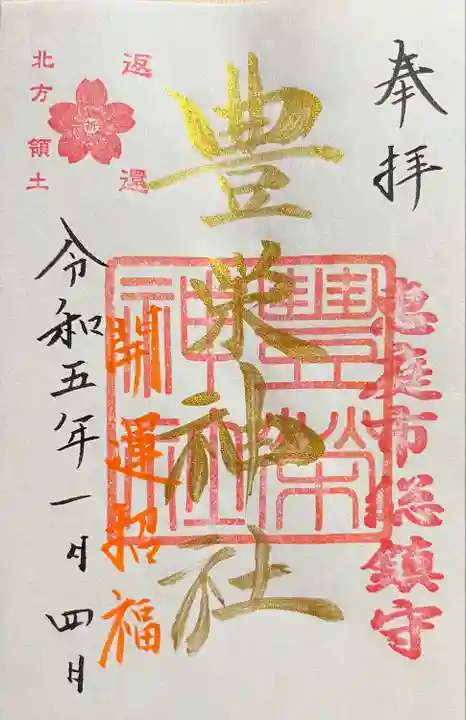 奉拝
恵庭市総鎮守
豊栄神社
豊栄神社
開運招福
令和五年一月四日
返還
北方領土